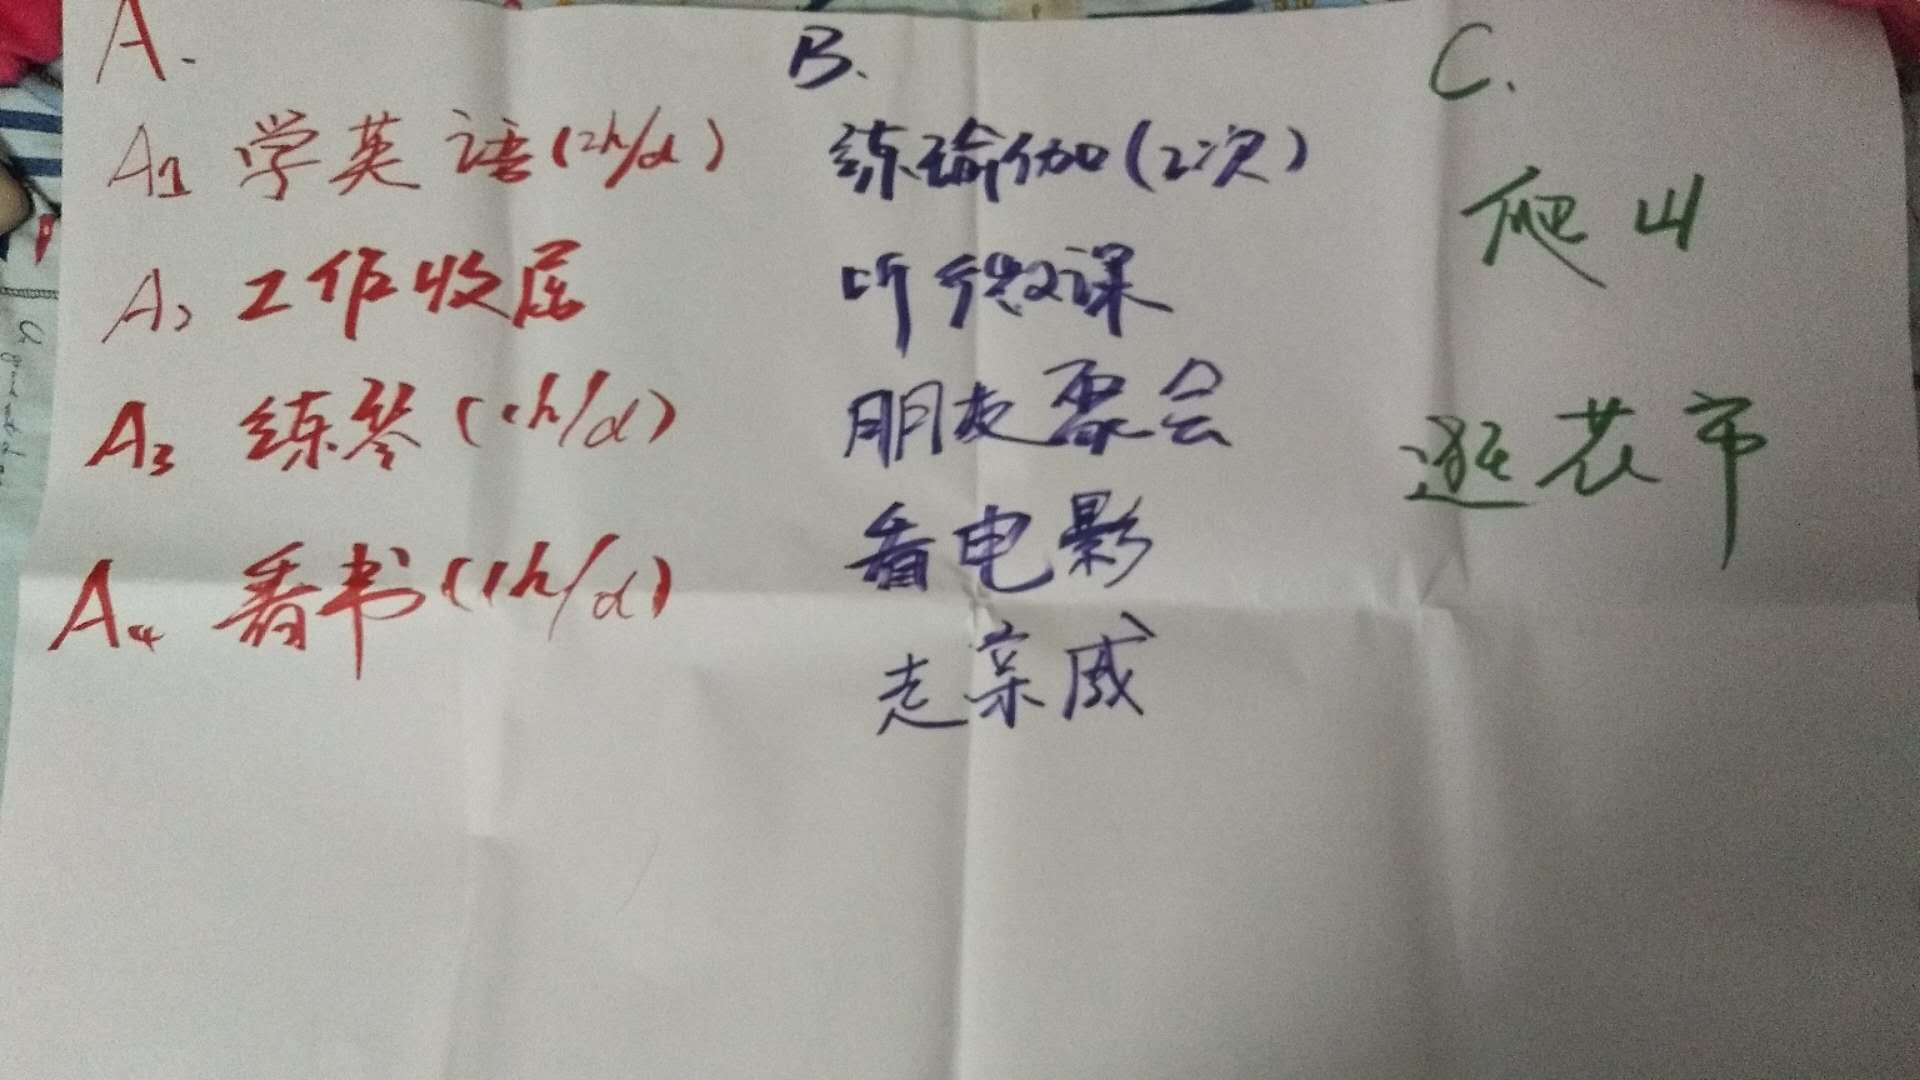 A.
A1 学英语(2h/d)
A2 工作收尾
A3 练琴(1h/d)
A4 看书(1h/d)
B.
练瑜伽(2次)
听微课
朋友聚会
看电影
走亲戚
C.
爬山
逛花市